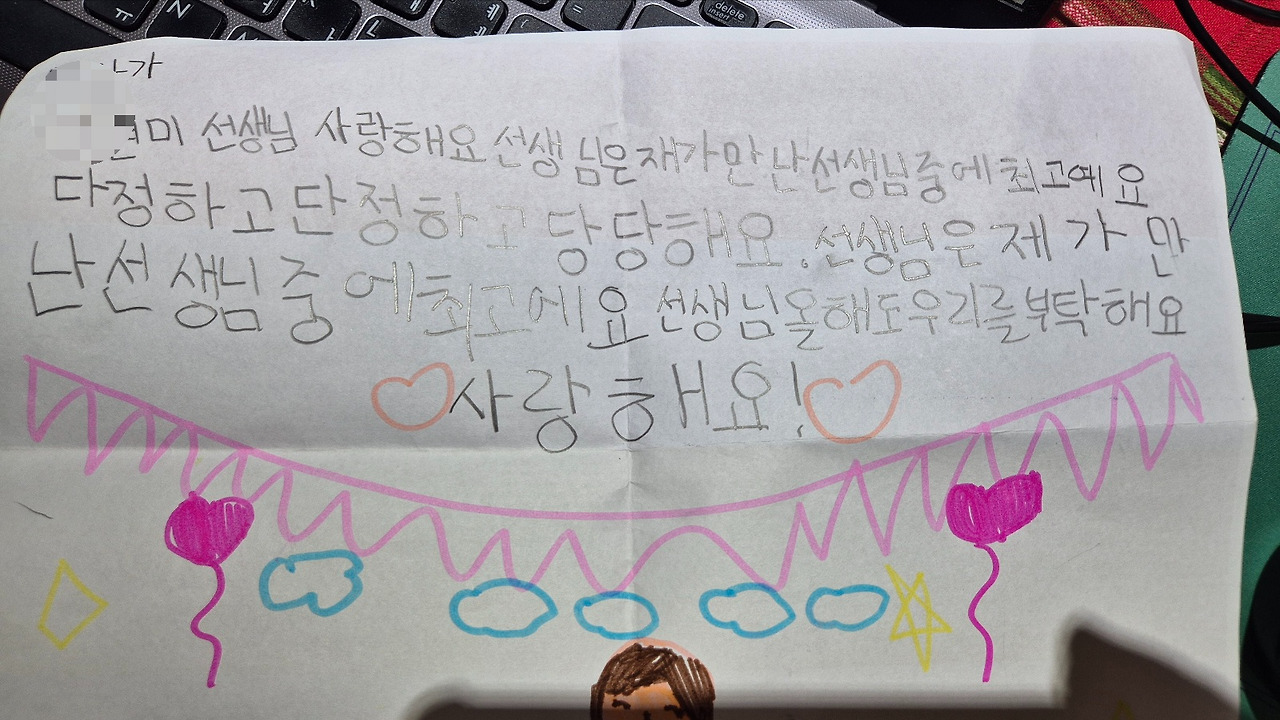 가
미 선생님 사랑해요 선생님은 재가만 난선생님중에 최고예요
다정하고 단정하고 당당해요. 선생님은 제 가 만
난선생님중에최고에요 선생님올해도우리를부탁해요
사랑해요!
delete
insert